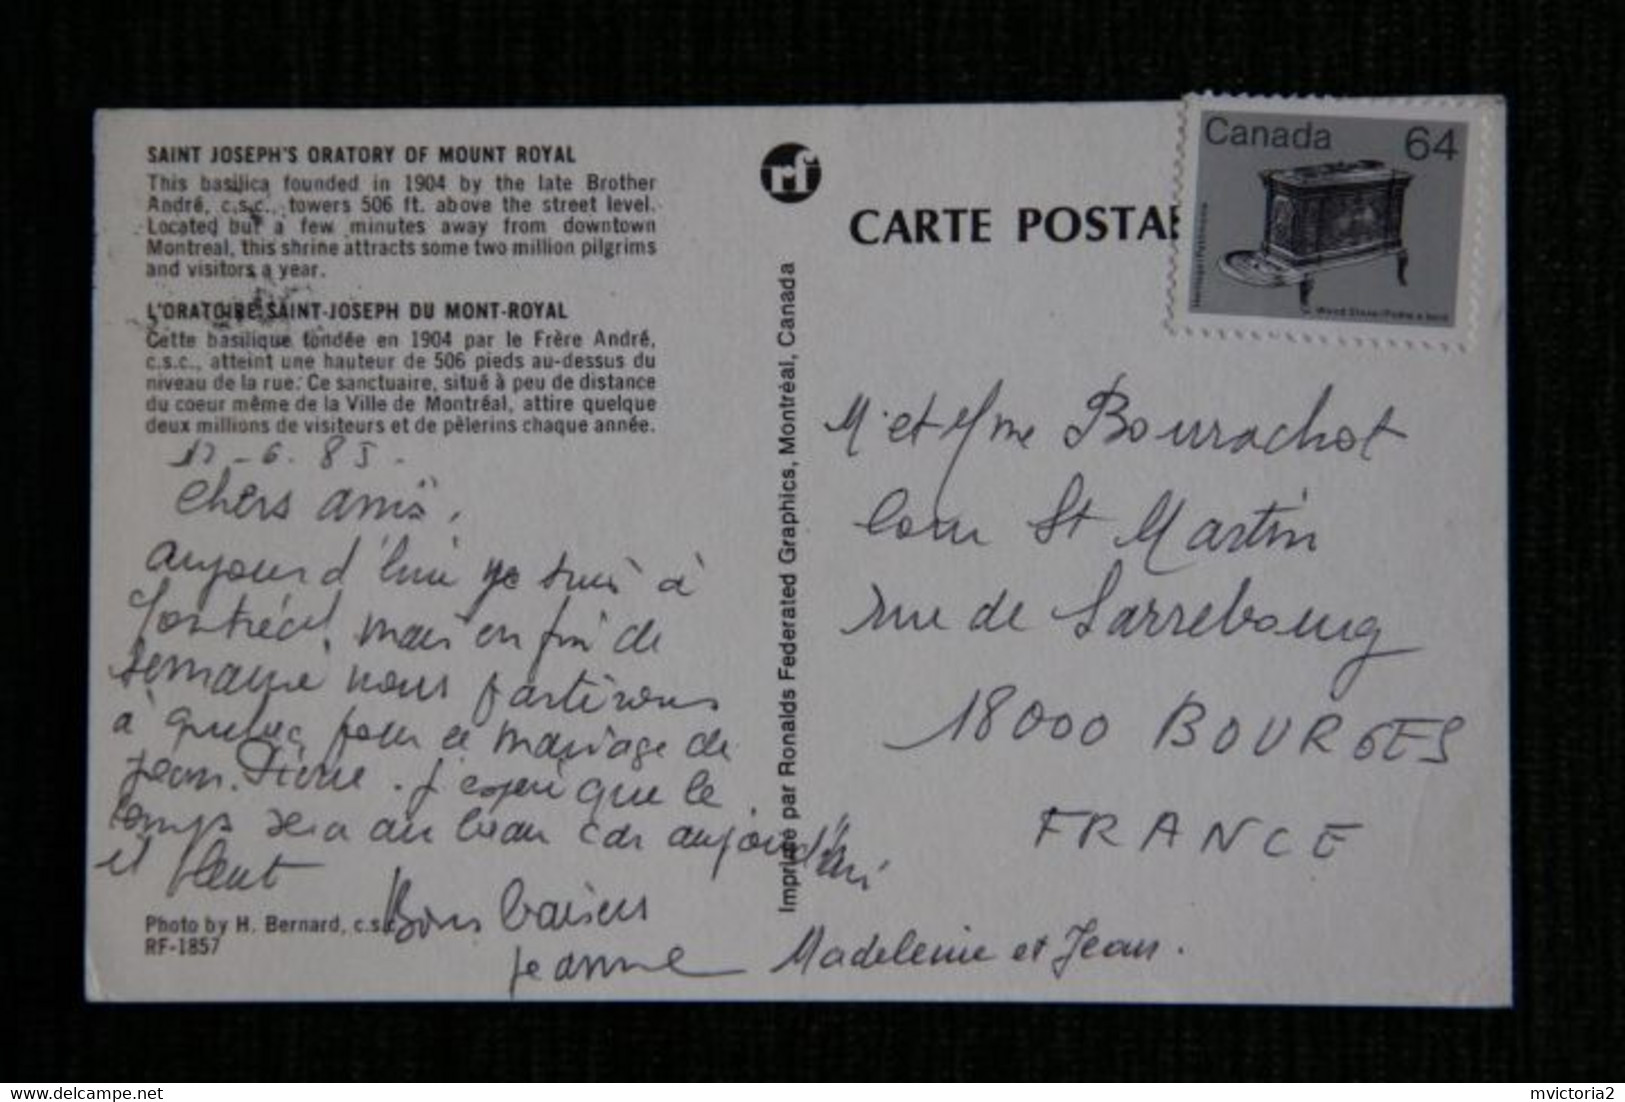 SAINT JOSEPH'S ORATORY OF MOUNT ROYAL
This basilica founded in 1904 by the late Brother
André, c.s.c., towers 506 ft. above the street level.
Located but a few minutes away from downtown
Montreal, this shrine attracts some two million pilgrims
and visitors a year.
L'ORATOIRE SAINT-JOSEPH DU MONT-ROYAL
Cette basilique fondée en 1904 par le Frère André,
c.s.c., atteint une hauteur de 506 pieds au-dessus du
niveau de la rue. Ce sanctuaire, situé à peu de distance
du coeur même de la Ville de Montréal, attire quelque
deux millions de visiteurs et de pèlerins chaque année.
-6.85.
Chers amis,
aujourd'hui je suis à
Montréal, mais en fin de
semaine nous partirons
à Québec pour le mariage de
Jean.Pierre. J'espère que le
temps sera au beau car aujourd'hui
il pleut
Bons baisers
Jeanne
Madeleine et Jean.
Photo by H. Bernard, c.s.c.
RF-1857
Imprimé par Ronalds Federated Graphics, Montréal, Canada
rf
CARTE POSTA
Canada 64
Heritage/Patrimoine
Wood Stove/Poêle à bois
M. et Mme Bourrachot
Cour St Martin
rue de Sarrebourg
18000 BOURGES
FRANCE
mvictoria2